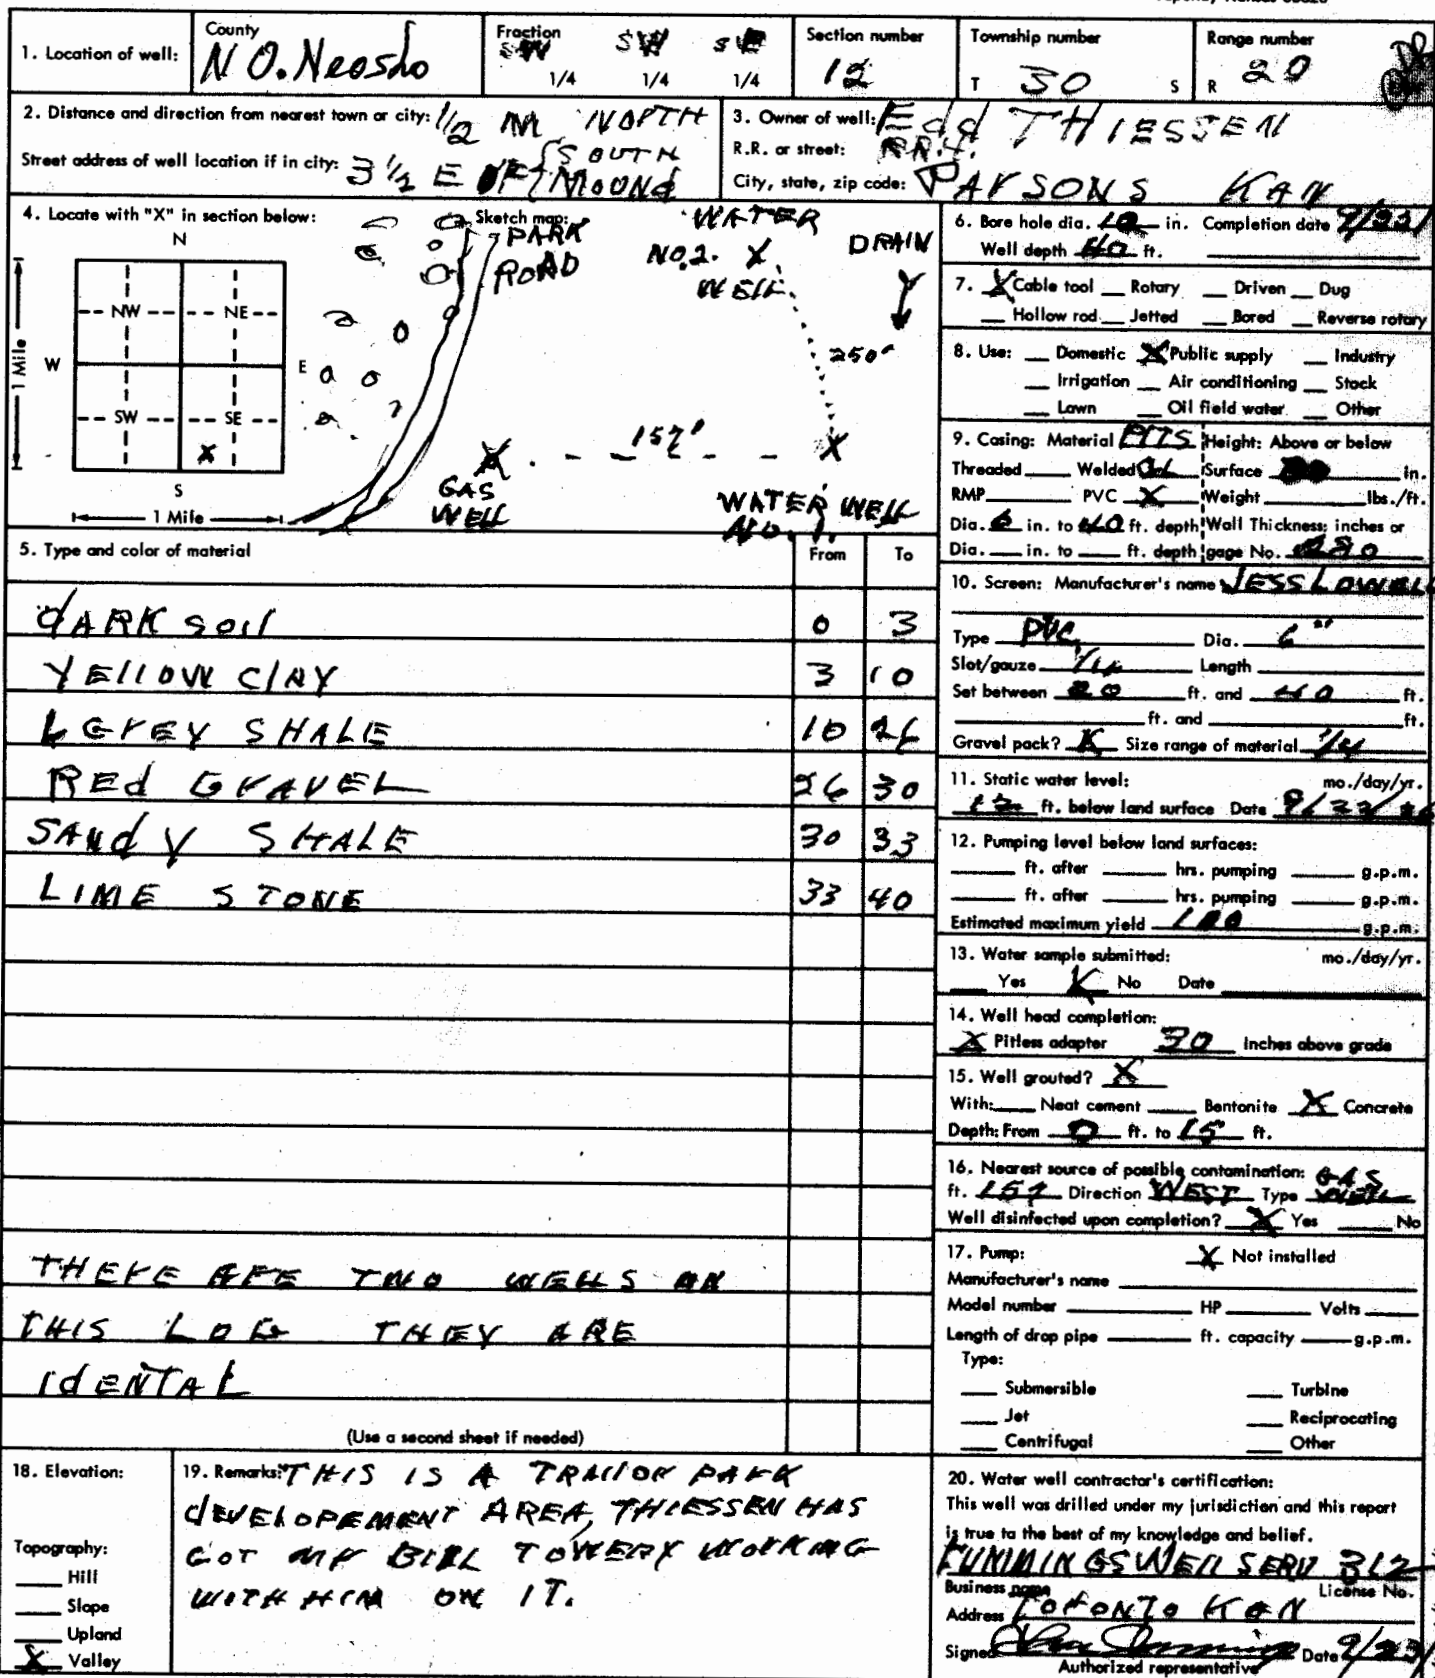 1. Location of well:
County
NO. Neosho
Fraction
SW SW SE
1/4 1/4 1/4
Section number
12
Township number
T 30 S
Range number
R 20
2. Distance and direction from nearest town or city: 1/2 M NORTH
SOUTH
Street address of well location if in city: 3 1/2 E OF MOUNd
3. Owner of well: Edd THIESSEN
R.R. or street:
City, state, zip code: PARSONS KAN
4. Locate with "X" in section below:
N
NW NE
W E
SW SE
X
S
1 Mile
1 Mile
Sketch map:
PARK
ROAD
WATER
NO.2. X
WELL
DRAIN
250'
157'
X X
GAS
WELL
WATER WELL
NO. 1.
5. Type and color of material From To
dARK SOIl 0 3
YEllOW ClAY 3 10
LGrEY SHALE 10 26
REd GrAVEL 26 30
SANdY SHALE 30 33
LIME STONE 33 40
THErE ArE TWO WELLS ON
THIS LOG THEY ARE
IdENTAL
(Use a second sheet if needed)
6. Bore hole dia. 10 in. Completion date 9/23/
Well depth 40 ft.
7. X Cable tool Rotary Driven Dug
Hollow rod Jetted Bored Reverse rotary
8. Use: Domestic X Public supply Industry
Irrigation Air conditioning Stock
Lawn Oil field water Other
9. Casing: Material Height: Above or below
Threaded Welded Surface in.
RMP PVC X Weight lbs./ft.
Dia. 6 in. to 40 ft. depth Wall Thickness: inches or
Dia. in. to ft. depth gage No.
10. Screen: Manufacturer's name JESS LOWELL
Type PVC Dia. 6"
Slot/gauze Length
Set between 20 ft. and 40 ft.
ft. and ft.
Gravel pack? X Size range of material 1/4
11. Static water level: mo./day/yr.
12 ft. below land surface Date 9/23/
12. Pumping level below land surfaces:
ft. after hrs. pumping g.p.m.
ft. after hrs. pumping g.p.m.
Estimated maximum yield 100 g.p.m.
13. Water sample submitted: mo./day/yr.
Yes X No Date
14. Well head completion:
X Pitless adapter 30 Inches above grade
15. Well grouted? X
With: Neat cement Bentonite X Concrete
Depth: From 0 ft. to 15 ft.
16. Nearest source of possible contamination: GAS
ft. 157 Direction WEST Type WELL
Well disinfected upon completion? X Yes No
17. Pump: X Not installed
Manufacturer's name
Model number HP Volts
Length of drop pipe ft. capacity g.p.m.
Type:
Submersible Turbine
Jet Reciprocating
Centrifugal Other
18. Elevation:
Topography:
Hill
Slope
Upland
X Valley
19. Remarks: THIS IS A TRAIlOR PArK
dEVElOPEMENT AREA, THIESSEN HAS
GOT Mr BIlL TOWERY WOrKING
WITH HIM ON IT.
20. Water well contractor's certification:
This well was drilled under my jurisdiction and this report
is true to the best of my knowledge and belief.
CUMMINGS WEll SERV 312
Business name License No.
Address TOrONTO KAN
Signed Date 9/23/
Authorized representative